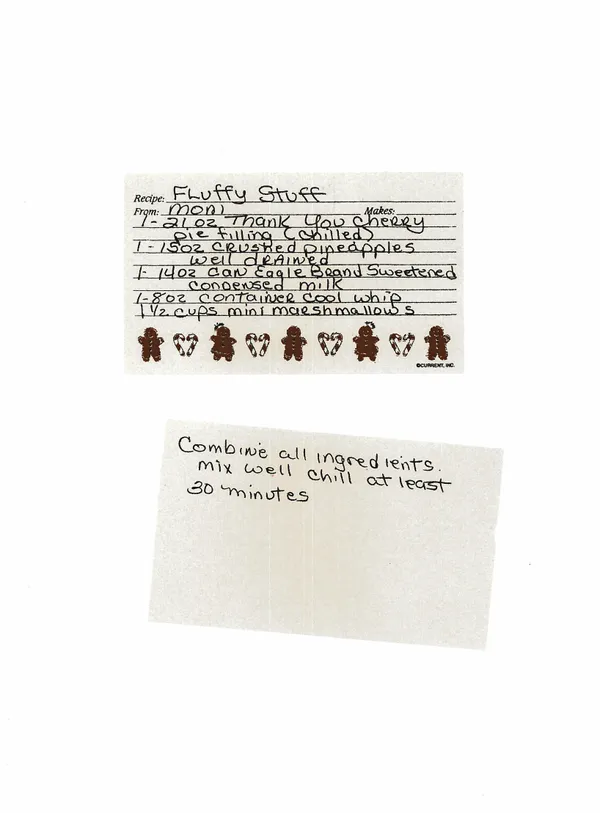 Recipe: Fluffy Stuff
From: Moni Makes:
1- 21 oz Thank You cherry
pie filling (chilled)
1- 15oz crushed pineapples
well drained
1- 14oz can Eagle Brand Sweetened
condensed milk
1-8oz container cool whip
1 1/2 cups mini marshmallows
©CURRENT, INC.
Combine all ingredients.
mix well chill at least
30 minutes